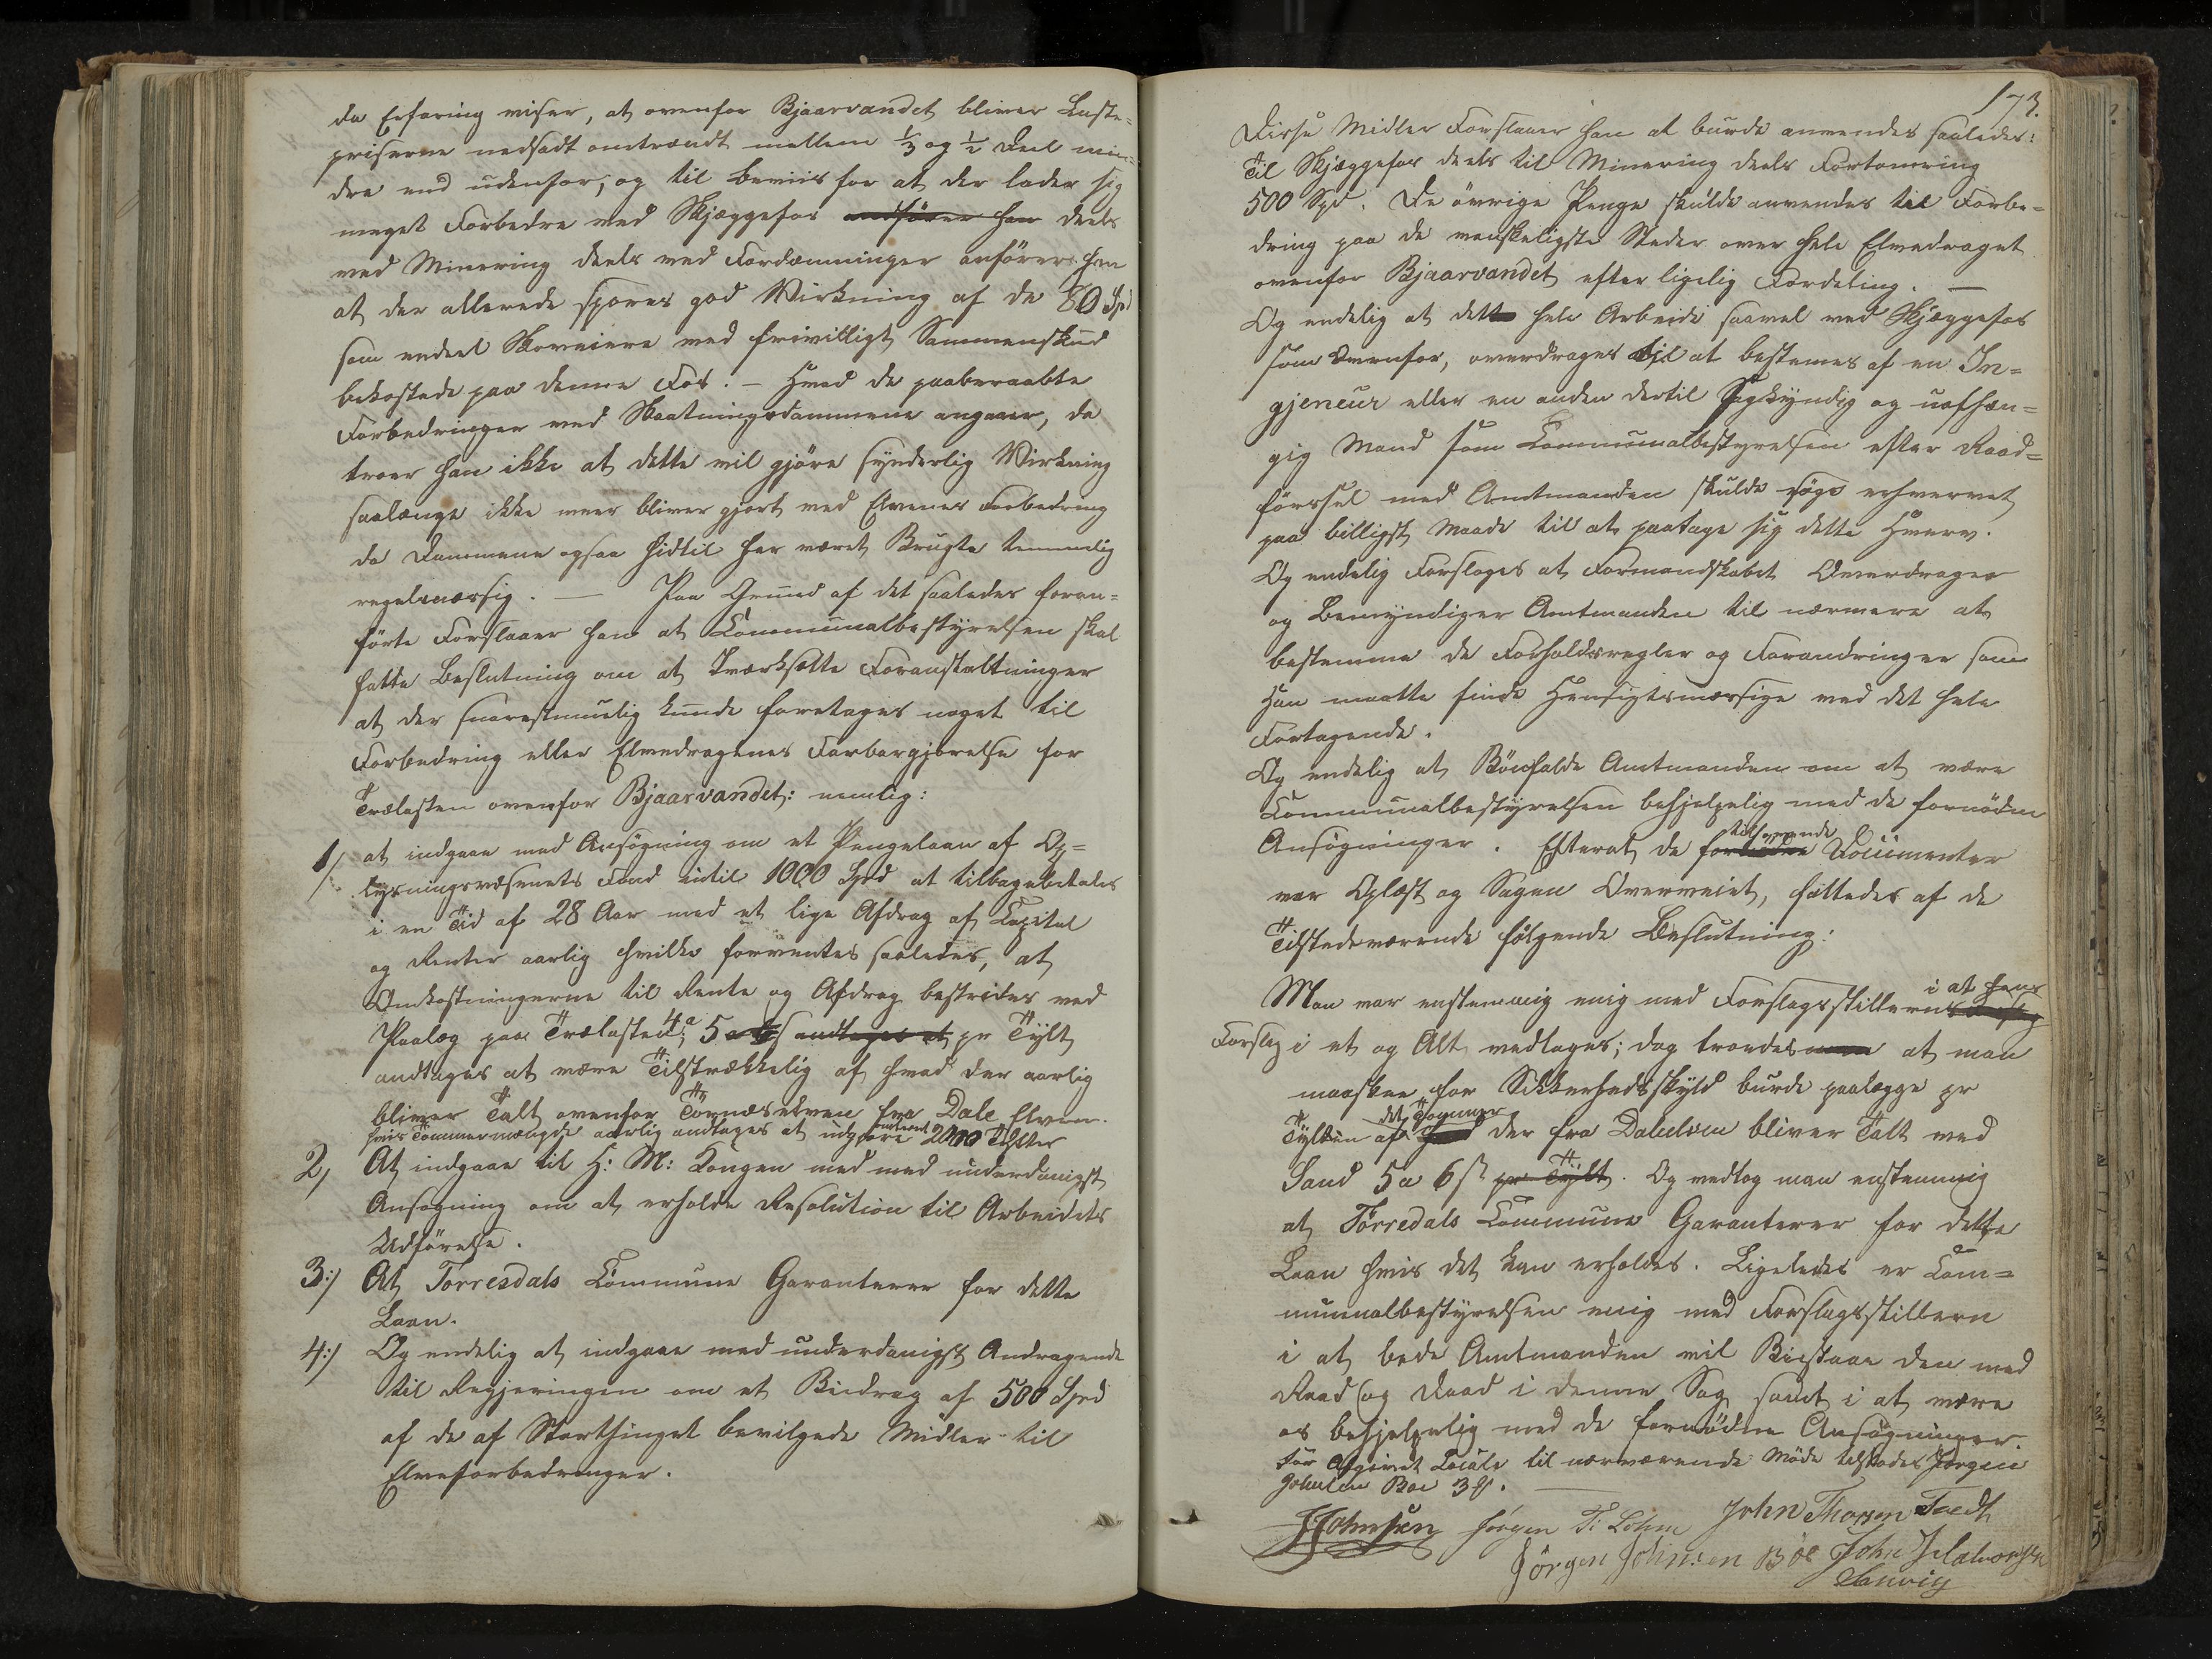 da Erfaring viser, at ovenfor Bjaarvandet bliver Laste-
priserne nedsadt omtrændt mellem ⅓ og ½ Deel min-
dre end udenfor; og til beviis for at der lader sig
meget Forbedre ved Skjæggefos andförer han deels
ved Minering deels ved Fordæmninger anförer han
at der allerede spores god Wirkning af de 80 Spd
som endeel Skoveiere ved frivilligt Sammenskud
bekostede paa denne Fos. – Hvad de paaberaabte
Forbedringer ved Skaatningsdammene angaaer, da
troer han ikke at dette vil gjöre synderlig Wirkning
saalænge ikke meer bliver gjort ved Elvenes Forbedring
da Dammene ogsaa hidtil har været Brugte temmelig
regelmæssig. — Paa Grund af det saaledes foran-
förte Forslaaer han at Communalbestyrelsen skal
fatte Beslutning om at Iværksætte Foranstaltninger
at der snarestmuelig kunde foretages noget til
Forbedring eller Elvedragenes Farbargjörelse for
Trælasten ovenfor Bjaarvandet: nemlig:
1/ at indgaae med Ansögning om et Pengelaan af Op-
lysningsvæsenets Fond indtil 1000 Spd at tilbagebetales
i en Tid af 28 Aar med et lige Afdrag af Capital
og Renter aarlig hvilke forventes saaledes, at
Omkostningerne til Rente og Afdrag bestrides ved
Paalæg paa Trælasten 4 a 5 a 6 s andtages at pr Tylt
andtages at være Tilstrækkelig af hvad der aarlig
bliver Talt ovenfor Tovnæselven fra Dale Elven.
hvis Tömmermængde aarlig andtages at udgjöre omtrent 2000 Tylter
2/ At indgaae til H: M: Kongen med med underdanigst
Ansögning om at erholde Resolution til Arbeidets
Udförelse.
3:/ At Torresdals Commune Garanterer for dette
Laan.
4:/ Og endelig at indgaae med underdanigst Andragende
til Regjeringen om et Bidrag af 500 Spd
af de af Storthinget bevilgede Midler til
Elveforbedringer.
173.
Disse Midler Forslaaer han at burde anvendes saaledes:
Til Skjæggefos deels til Minering deels Fortomring
500 Spd. De övrige Penge skulde anvendes til Forbe-
dring paa de vanskeligste Steder over hele Elvedraget
ovenfor Bjaarvandet efter ligelig Fordeling. —
Og endelig at dette hele Arbeide saavel ved Skjæggefos
som Ovenfor, overdrages til at bestemes af en In-
gjeneur eller en anden dertil Sagkyndig og uafhæn-
gig Mand som Communalbestyrelsen efter Raad-
förssel med Amtmanden skulde söge erhvervet
paa billigst Maade til at paatage sig dette Hverv.
Og endelig Forslages at Formandskabet Overdrager
og Bemyndiger Amtmanden til nærmere at
bestemme de Forholdsregler og Forandringer som
Han maatte finde Hensigtsmæssige ved det hele
Fortagende.
Og endelig at Bönfalde Amtmanden om at være
Communalbestyrelsen behjelpelig med de fornödne
Ansögninger. Efterat de fornödne tilhörende Documenter
var Oplæst og Sagen Overveiet, fattedes af de
Tilstedeværende fölgende Beslutning:
Man var enstemmig enig med Forslagsstilleren i at hans
Forslag i et og Alt vedtages; dog troedes man at man
maaskee for Sikkerhedsskyld burde paalægge pr
Tylten af hvad det Tömmer der fra Daleelven bliver Talt ved
Sand 5 a 6 s pr Tylt. Og vedtog man enstemmig
at Törredals Commune Garanterer for dette
Laan hvis det kan erholdes. Ligeledes er Com-
munalbestyrelsen enig med Forslagsstilleren
i at bede Amtmanden vil Bistaae den med
Raad og Daad i denne Sag samt i at være
os behjelpelig med de fornödne Ansögninger.
For Afgivet Locale til nærværende Möde tilstodes Jörgen
Johnsen Böe 3 s. —
JJohnsen Jörgen T: John Thorsen Tvedt
Jörgen Johnsen Böe John JHalvorsen
Sanvig